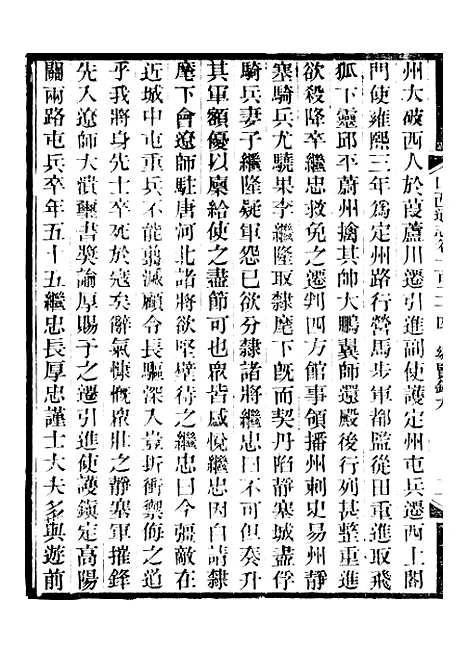 州大破西人於葭蘆川遷引進副使護定州屯兵遷西上閤
門使雍熙三年爲定州路行營馬步軍都監從田重進取飛
狐下靈邱平蔚州擒其帥大鵬翼師還殿後行列甚整重進
欲殺降卒繼忠救免之遷判四方館事領播州刺史易州靜
塞騎兵尤驍果李繼隆取隸麾下旣而契丹陷靜塞城盡俘
騎兵妻子繼隆疑軍怨已欲分隸諸將繼忠曰不可但奏升
其軍額優以廩給使之盡節可也眾皆感悅繼忠因自請隸
麾下會遼師駐唐河北諸將欲堅壁待之繼忠曰今彊敵在
近城中屯重兵不能剪滅顧令長驅深入豈折衝禦侮之道
乎我將身先士卒死於寇矣辭氣慷慨眾壯之靜塞軍摧鋒
先入遼師大潰璽書奬諭厚賜予之遷引進使護鎭定高陽
關兩路屯兵卒年五十五繼忠長厚忠謹士大夫多與遊前
山西通志卷一百二十四 鄉賢錄九 二